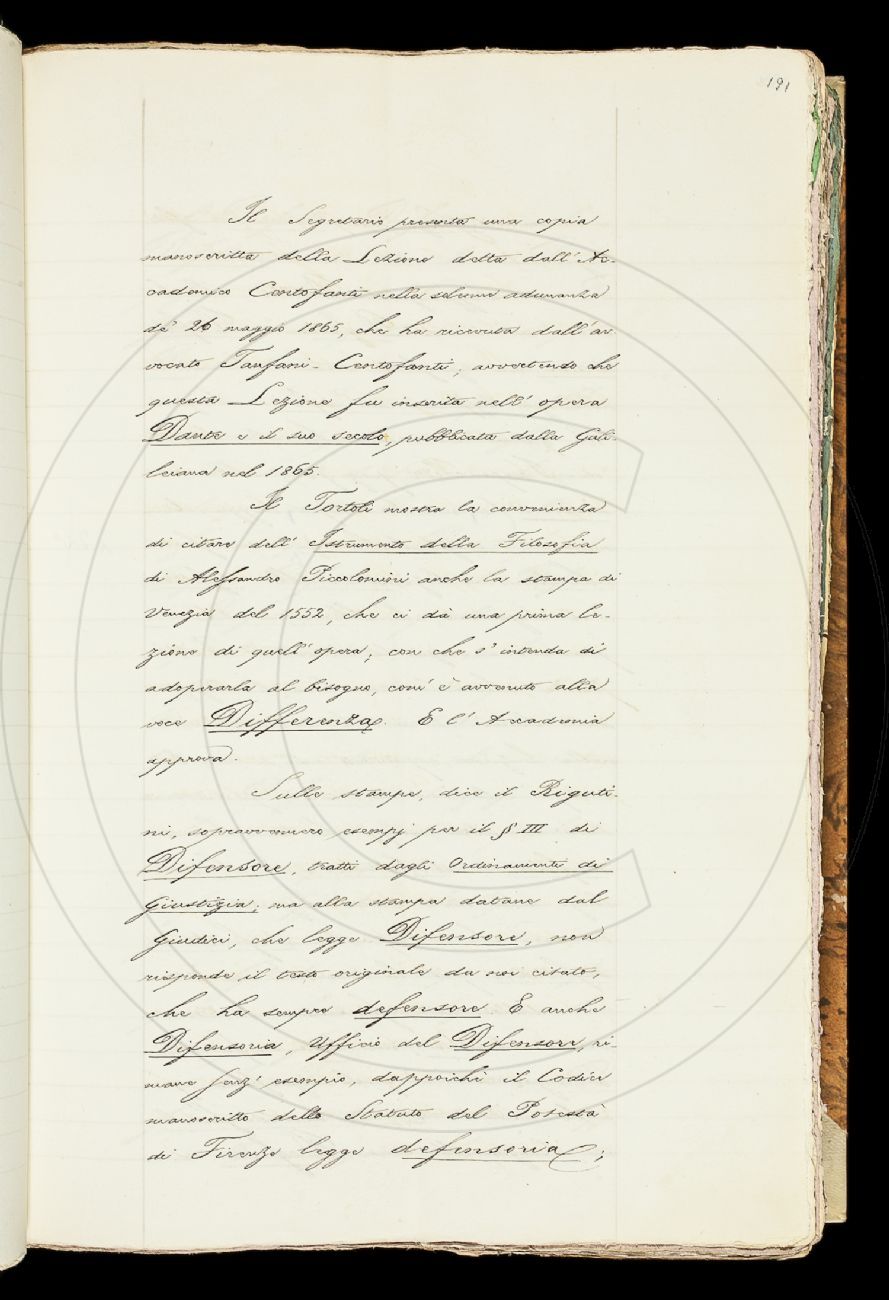 191
Il Segretario presenta una copia
manoscritta della Lezione detta dall' Ac-
cademico Centofanti nella solenne adunanza
de' 26 maggio 1865, che ha ricevuta dall' av
vocato Tanfani-Centofanti; avvertendo che
questa Lezione fu inserita nell' opera
Dante e il suo secolo, pubblicata dalla Gali-
leiana nel 1865.
Il Tortoli mostra la convenienza
di citare dell' Istrumento della Filosofia
di Alessandro Piccolomini anche la stampa di
Venezia del 1552, che ci dà una prima le-
zione di quell' opera; con che s' intenda di
adoperarla al bisogno, com' è avvenuto alla
voce Differenza. E l' Accademia
approva.
Sulle stampe, dice il Riguti-
ni, sopravvennero esempj per il § III di
Difensore, tratti dagli Ordinamenti di
Giustizia; ma alla stampa datane dal
Giudici, che legge Difensore, non
risponde il testo originale da noi citato,
che ha sempre defensore. E anche
Difensoria, Ufficio del Difensore, ri-
mane senz' esempio, dappoichè il Codice
manoscritto dello Statuto del Potestà
di Firenze legge defensoria;